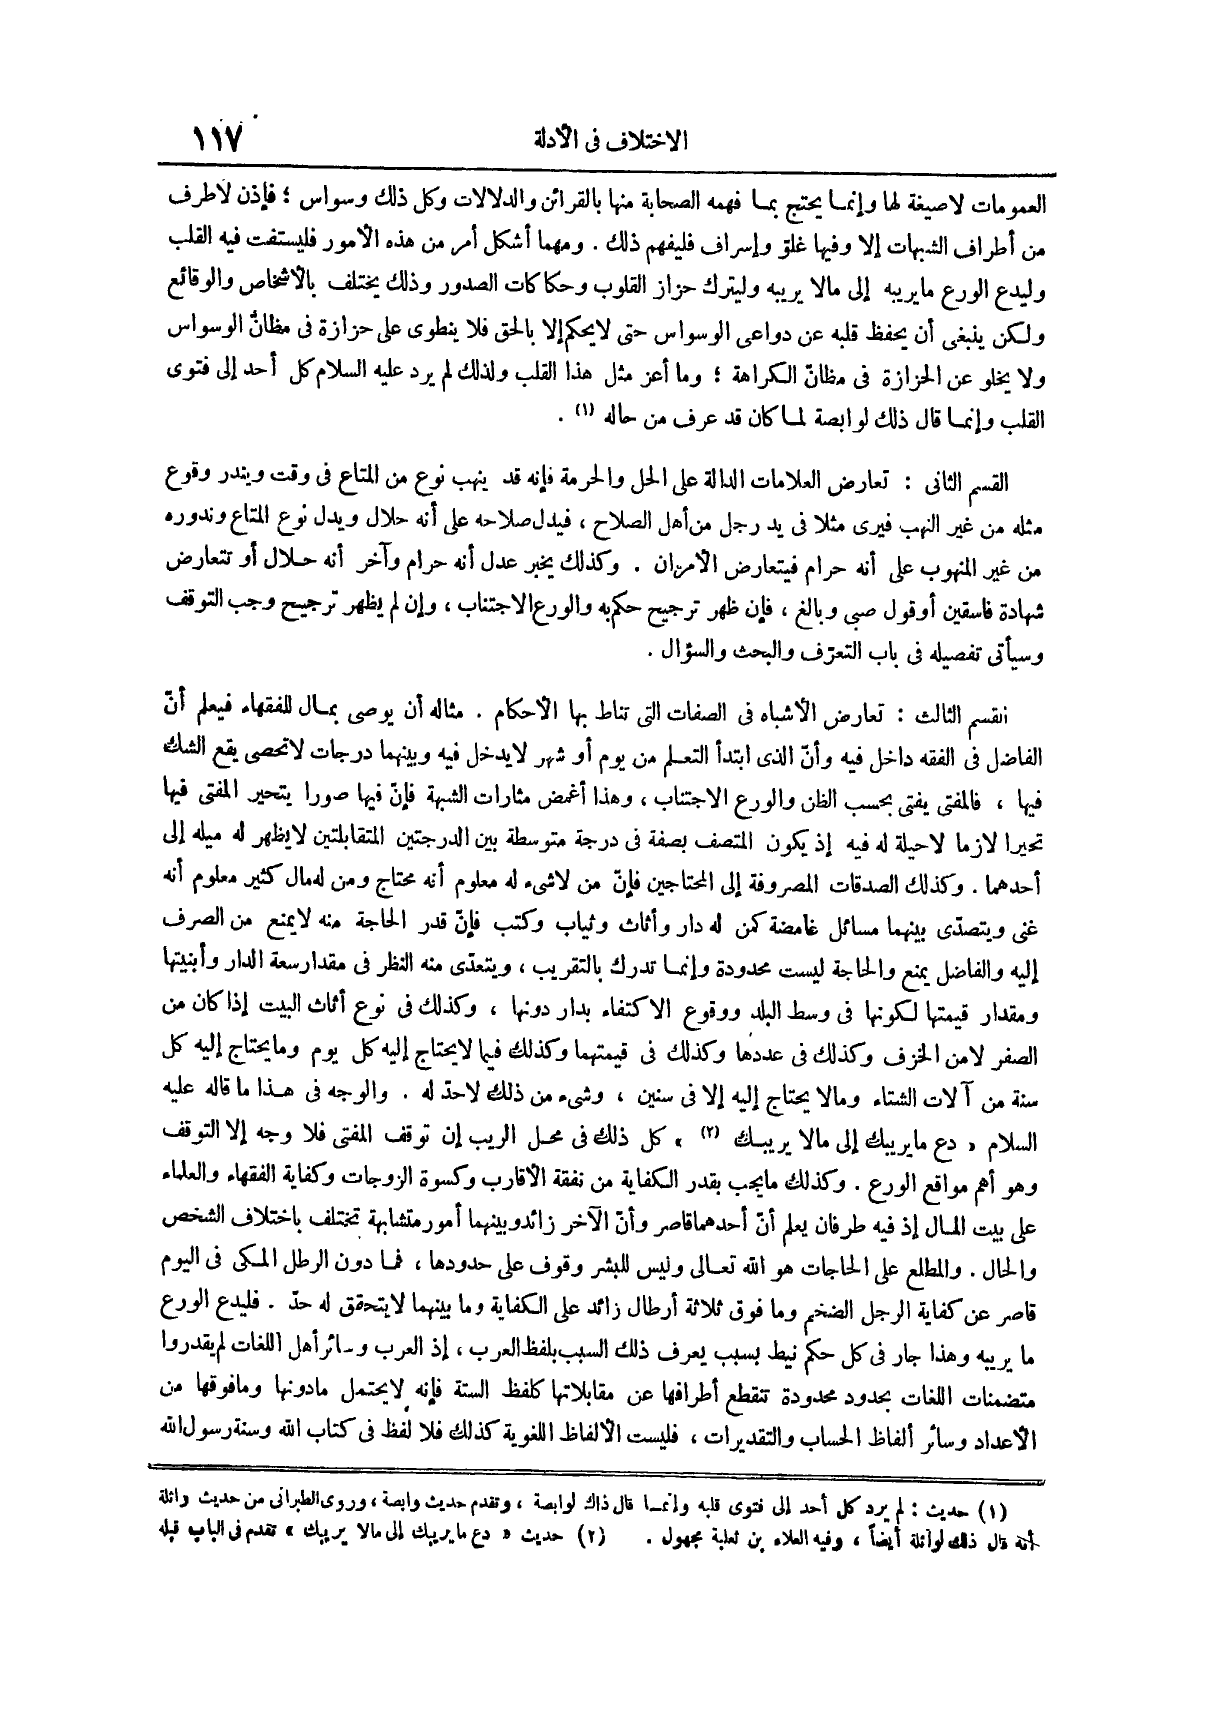 الاختلاف فى الأدلة ١١٧
العمومات لاصيغة لها وإنما يحتج بما فهمه الصحابة منها بالقرائن والدلالات وكل ذلك وسواس ؛ فإذن لاطرف
من أطراف الشبهات إلا وفيها غلو وإسراف فليفهم ذلك . ومهما أشكل أمر من هذه الأمور فليستفت فيه القلب
وليدع الورع مايريبه إلى مالا يريبه وليترك حزاز القلوب وحكاكات الصدور وذلك يختلف بالأشخاص والوقائع
ولكن ينبغى أن يحفظ قلبه عن دواعى الوسواس حتى لايحكم إلا بالحق فلا ينطوى على حزازة فى مظانّ الوسواس
ولا يخلو عن الحزازة فى مظانّ الكراهة ؛ وما أعز مثل هذا القلب ولذلك لم يرد عليه السلام كل أحد إلى فتوى
القلب وإنما قال ذلك لوابصة لما كان قد عرف من حاله (١) .
القسم الثانى : تعارض العلامات الدالة على الحل والحرمة فإنه قد ينهب نوع من المتاع فى وقت ويندر وقوع
مثله من غير النهب فيرى مثلا فى يد رجل من أهل الصلاح ، فيدل صلاحه على أنه حلال ويدل نوع المتاع وندوره
من غير المنهوب على أنه حرام فيتعارض الأمران . وكذلك يخبر عدل أنه حرام وآخر أنه حلال أو تتعارض
شهادة فاسقين أوقول صبى وبالغ ، فإن ظهر ترجيح حكم به والورع الاجتناب ، وإن لم يظهر ترجيح وجب التوقف
وسيأتى تفصيله فى باب التعرّف والبحث والسؤال .
القسم الثالث : تعارض الأشباه فى الصفات التى تناط بها الأحكام . مثاله أن يوصى بمال للفقهاء فيعلم أنّ
الفاضل فى الفقه داخل فيه وأنّ الذى ابتدأ التعلم من يوم أو شهر لايدخل فيه وبينهما درجات لاتحصى يقع الشك
فيها ، فالمفتى يفتى بحسب الظن والورع الاجتناب ، وهذا أغمض مثارات الشبهة فإنّ فيها صورا يتحير المفتى فيها
تحيرا لازما لاحيلة له فيه إذ يكون المتصف بصفة فى درجة متوسطة بين الدرجتين المتقابلتين لايظهر له ميله إلى
أحدهما . وكذلك الصدقات المصروفة إلى المحتاجين فإنّ من لاشىء له معلوم أنه محتاج ومن له مال كثير معلوم أنه
غنى ويتصدّى بينهما مسائل غامضة كمن له دار وأثاث وثياب وكتب فإنّ قدر الحاجة منه لايمنع من الصرف
إليه والفاضل يمنع والحاجة ليست محدودة وإنما تدرك بالتقريب ، ويتعدّى منه النظر فى مقدار سعة الدار وأبنيتها
ومقدار قيمتها لكونها فى وسط البلد ووقوع الاكتفاء بدار دونها ، وكذلك فى نوع أثاث البيت إذا كان من
الصفر لامن الخزف وكذلك فى عددها وكذلك فى قيمتهما وكذلك فيما لايحتاج إليه كل يوم ومايحتاج إليه كل
سنة من آلات الشتاء ومالا يحتاج إليه إلا فى سنين ، وشىء من ذلك لاحدّ له . والوجه فى هذا ما قاله عليه
السلام « دع مايريبك إلى مالا يريبك (٢) » كل ذلك فى محل الريب إن توقف المفتى فلا وجه إلا التوقف
وهو أهم مواقع الورع . وكذلك مايجب بقدر الكفاية من نفقة الأقارب وكسوة الزوجات وكفاية الفقهاء والعلماء
على بيت المال إذ فيه طرفان يعلم أنّ أحدهما قاصر وأنّ الآخر زائد وبينهما أمور متشابهة تختلف باختلاف الشخص
والحال . والمطلع على الحاجات هو الله تعالى وليس للبشر وقوف على حدودها ، فما دون الرطل المكى فى اليوم
قاصر عن كفاية الرجل الضخم وما فوق ثلاثة أرطال زائد على الكفاية وما بينهما لايتحقق له حدّ . فليدع الورع
ما يريبه وهذا جار فى كل حكم نيط بسبب يعرف ذلك السبب بلفظ العرب ، إذ العرب وسائر أهل اللغات لم يقدروا
متضمنات اللغات بحدود محدودة تنقطع أطرافها عن مقابلاتها كلفظ الستة فإنه لايحتمل مادونها ومافوقها من
الأعداد وسائر ألفاظ الحساب والتقديرات ، فليست الألفاظ اللغوية كذلك فلا لفظ فى كتاب الله وسنة رسول الله
(١) حديث : لم يرد كل أحد إلى فتوى قلبه وإنما قال ذاك لوابصة ، وتقدم حديث وابصة ، وروى الطبرانى من حديث واثلة
أنه قال ذلك لواثلة أيضاً ، وفيه العلاء بن ثعلبة مجهول . (٢) حديث « دع مايريبك إلى مالا يريبك » تقدم فى الباب قبله